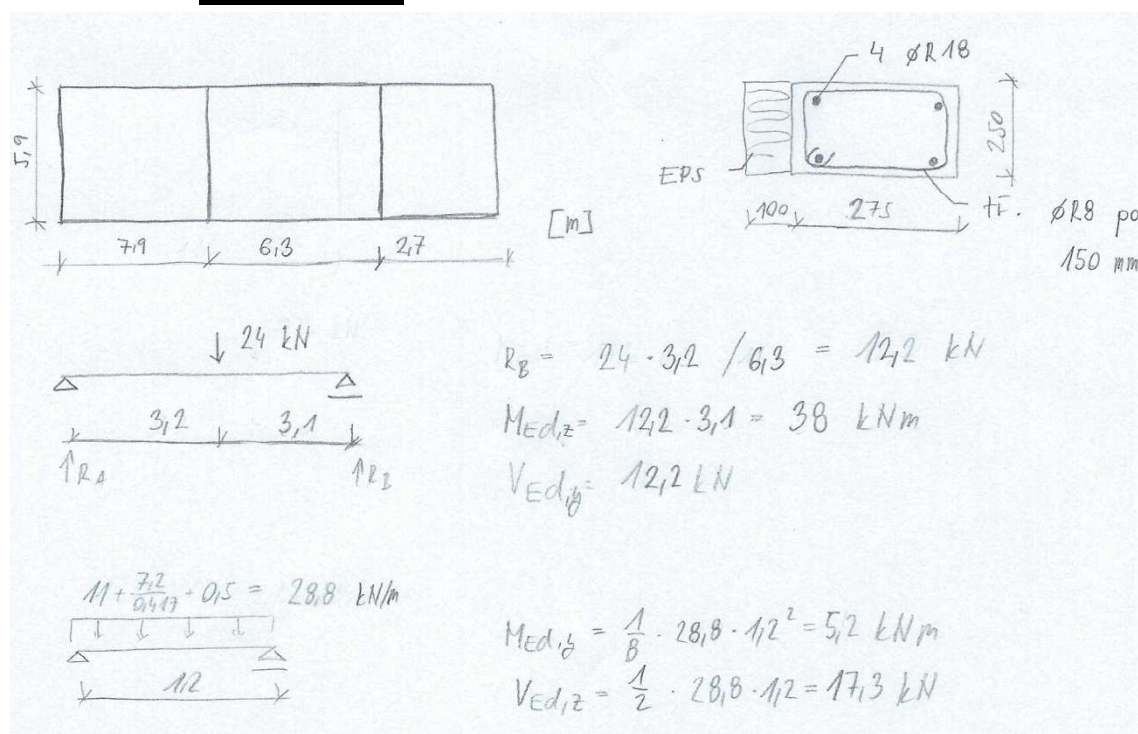 4 φR18
5,9
250
EPS
[m]
100 275
tř. φR8 po
150 mm
7,9 6,3 2,7
24 kN
3,2 3,1
↑RA ↑RB
RB = 24 · 3,2 / 6,3 = 12,2 kN
MEd,z = 12,2 · 3,1 = 38 kNm
VEd,y = 12,2 kN
11 + 7,2/0,417 + 0,5 = 28,8 kN/m
1,2
MEd,y = 1/8 · 28,8 · 1,2² = 5,2 kNm
VEd,z = 1/2 · 28,8 · 1,2 = 17,3 kN